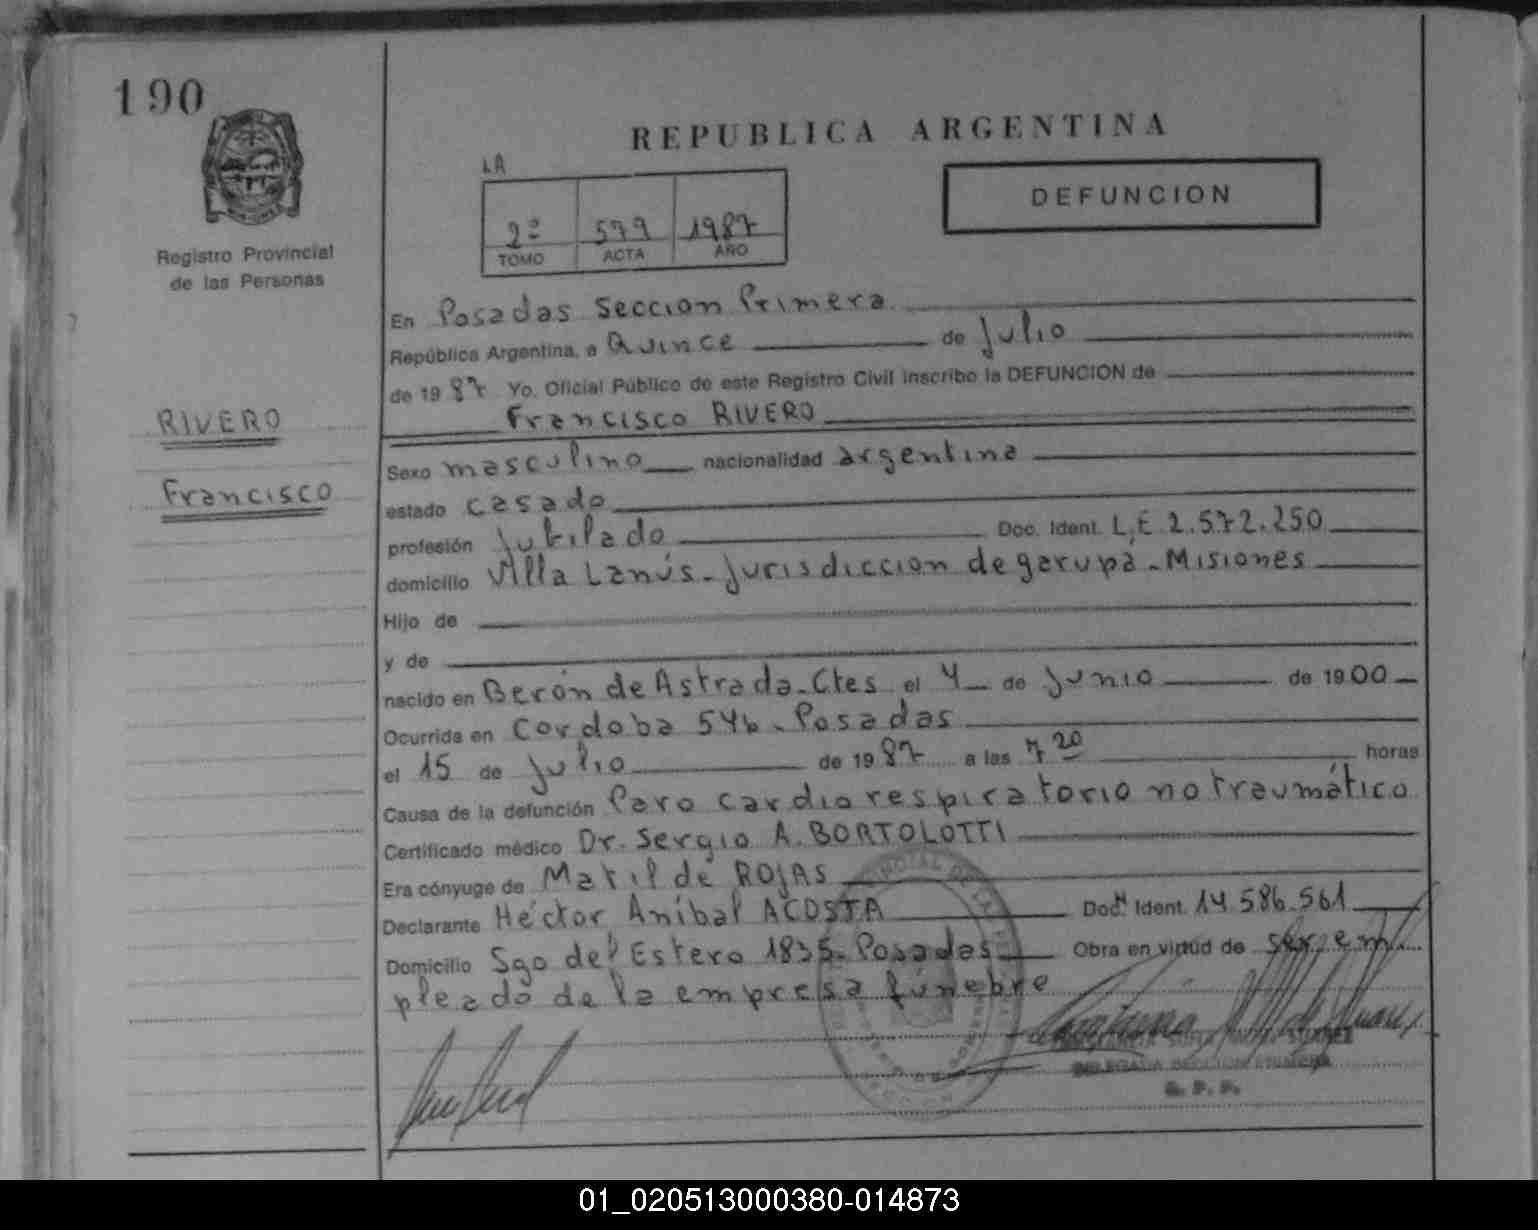 190
REPUBLICA ARGENTINA
LA
DEFUNCION
2º 579 1987
TOMO ACTA AÑO
Registro Provincial
de las Personas
En Posadas Seccion Primera
República Argentina, a Quince de Julio
de 1987 Yo. Oficial Público de este Registro Civil inscribo la DEFUNCION de
Francisco RIVERO
RIVERO
Francisco
Sexo masculino nacionalidad argentina
estado casado
profesión Jubilado Doc. Ident. L.E 2.572.250
domicilio Villa Lanús - Jurisdiccion de garupá - Misiones
Hijo de
y de
nacido en Berón de Astrada - Ctes el 4 de Junio de 1900
Ocurrida en Cordoba 546 - Posadas
el 15 de Julio de 1987 a las 7 20 horas
Causa de la defunción Paro cardiorespiratorio no traumático
Certificado médico Dr. Sergio A. BORTOLOTTI
Era cónyuge de Matilde ROJAS
Declarante Héctor Aníbal ACOSTA Doc. Ident. 14.586.561
Domicilio Sgo del Estero 1835 - Posadas Obra en virtud de ser em
pleado de la empresa fúnebre
DELEGADA SECCION PRIMERA
R. P. P.
01_020513000380-014873